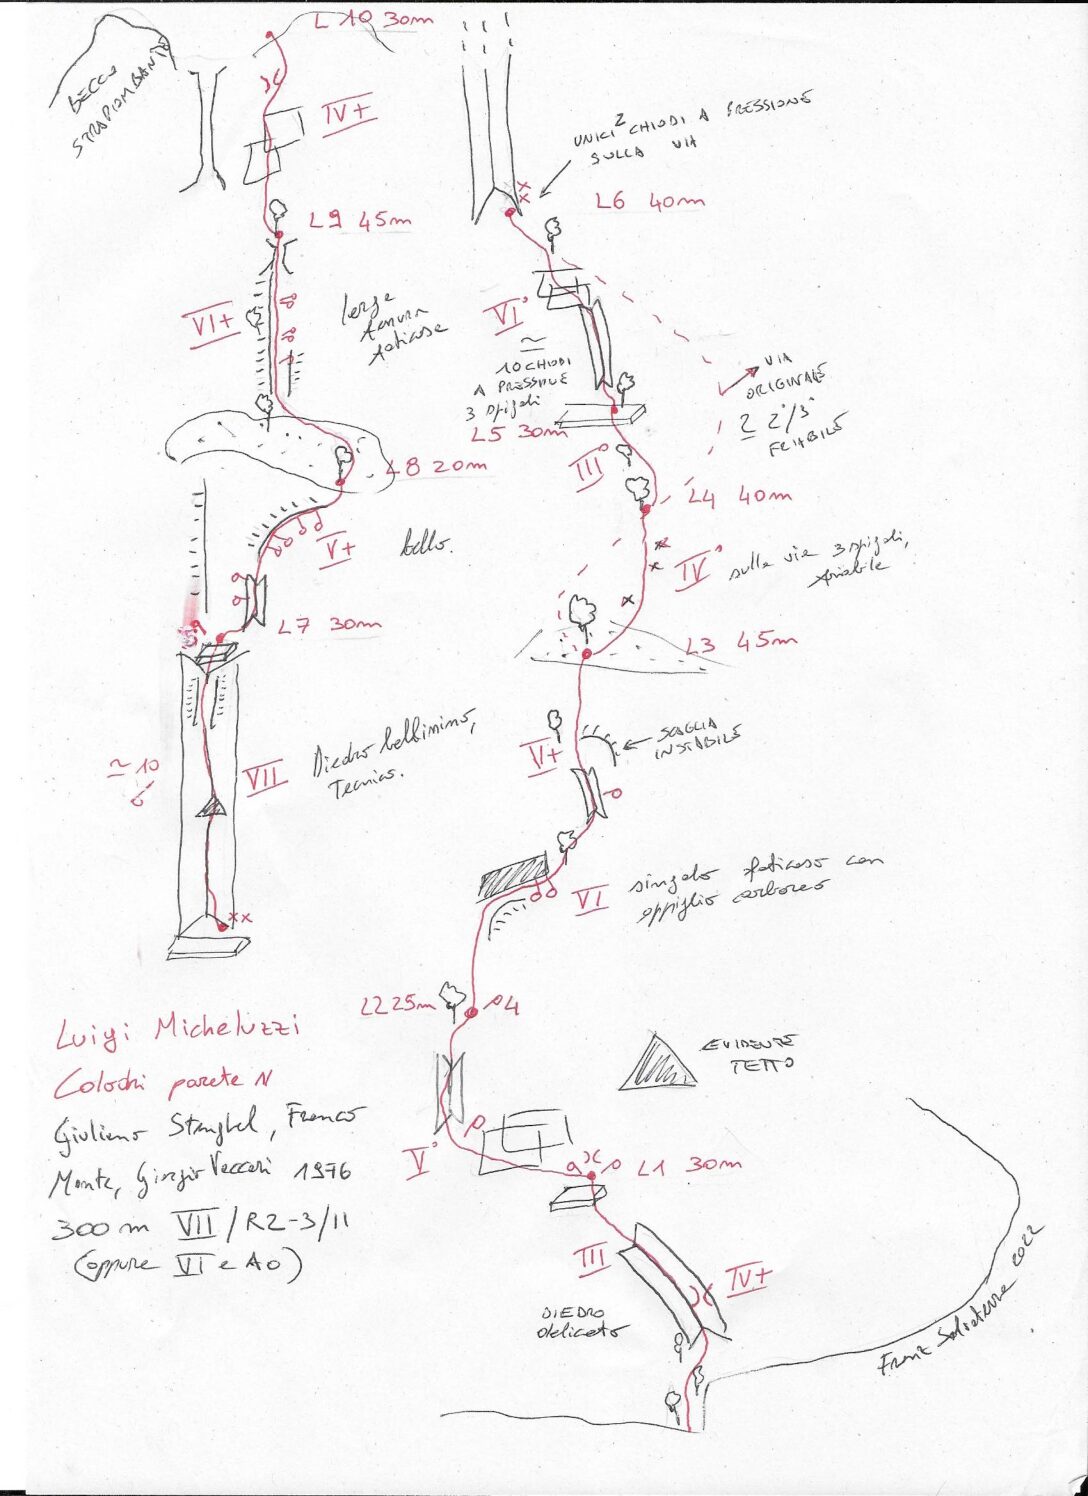 L 10 30m
BECCO
STRAPIOMBANTE
IV+
L9 45m
VI+
L8 20m
V+
bello.
L7 30m
≃ 10
VII
Diedro bellissimo,
Tecnico.
xx
UNICI 2 CHIODI A PRESSIONE
SULLA VIA
xx
L6 40m
VI°
≃
10 CHIODI
A PRESSIONE
3 spigoli
L5 30m
VIA
ORIGINALE
2°/3°
FRIABILE
III°
L4 40m
IV°
sulla via 3 spigoli,
friabile
L3 45m
V+
SCAGLIA
INSTABILE
VI
singolo faticoso con
appiglio arboreo
L2 25m
4
EVIDENTE
TETTO
V°
L1 30m
III
IV+
DIEDRO
delicato
Luigi Micheluzzi
Colodri parete N
Giuliano Stenghel, Franco
Monte, Giorgio Vaccari 1976
300m VII / R2-3/II
(oppure VI e A0)
Franz Salvaterra 2022